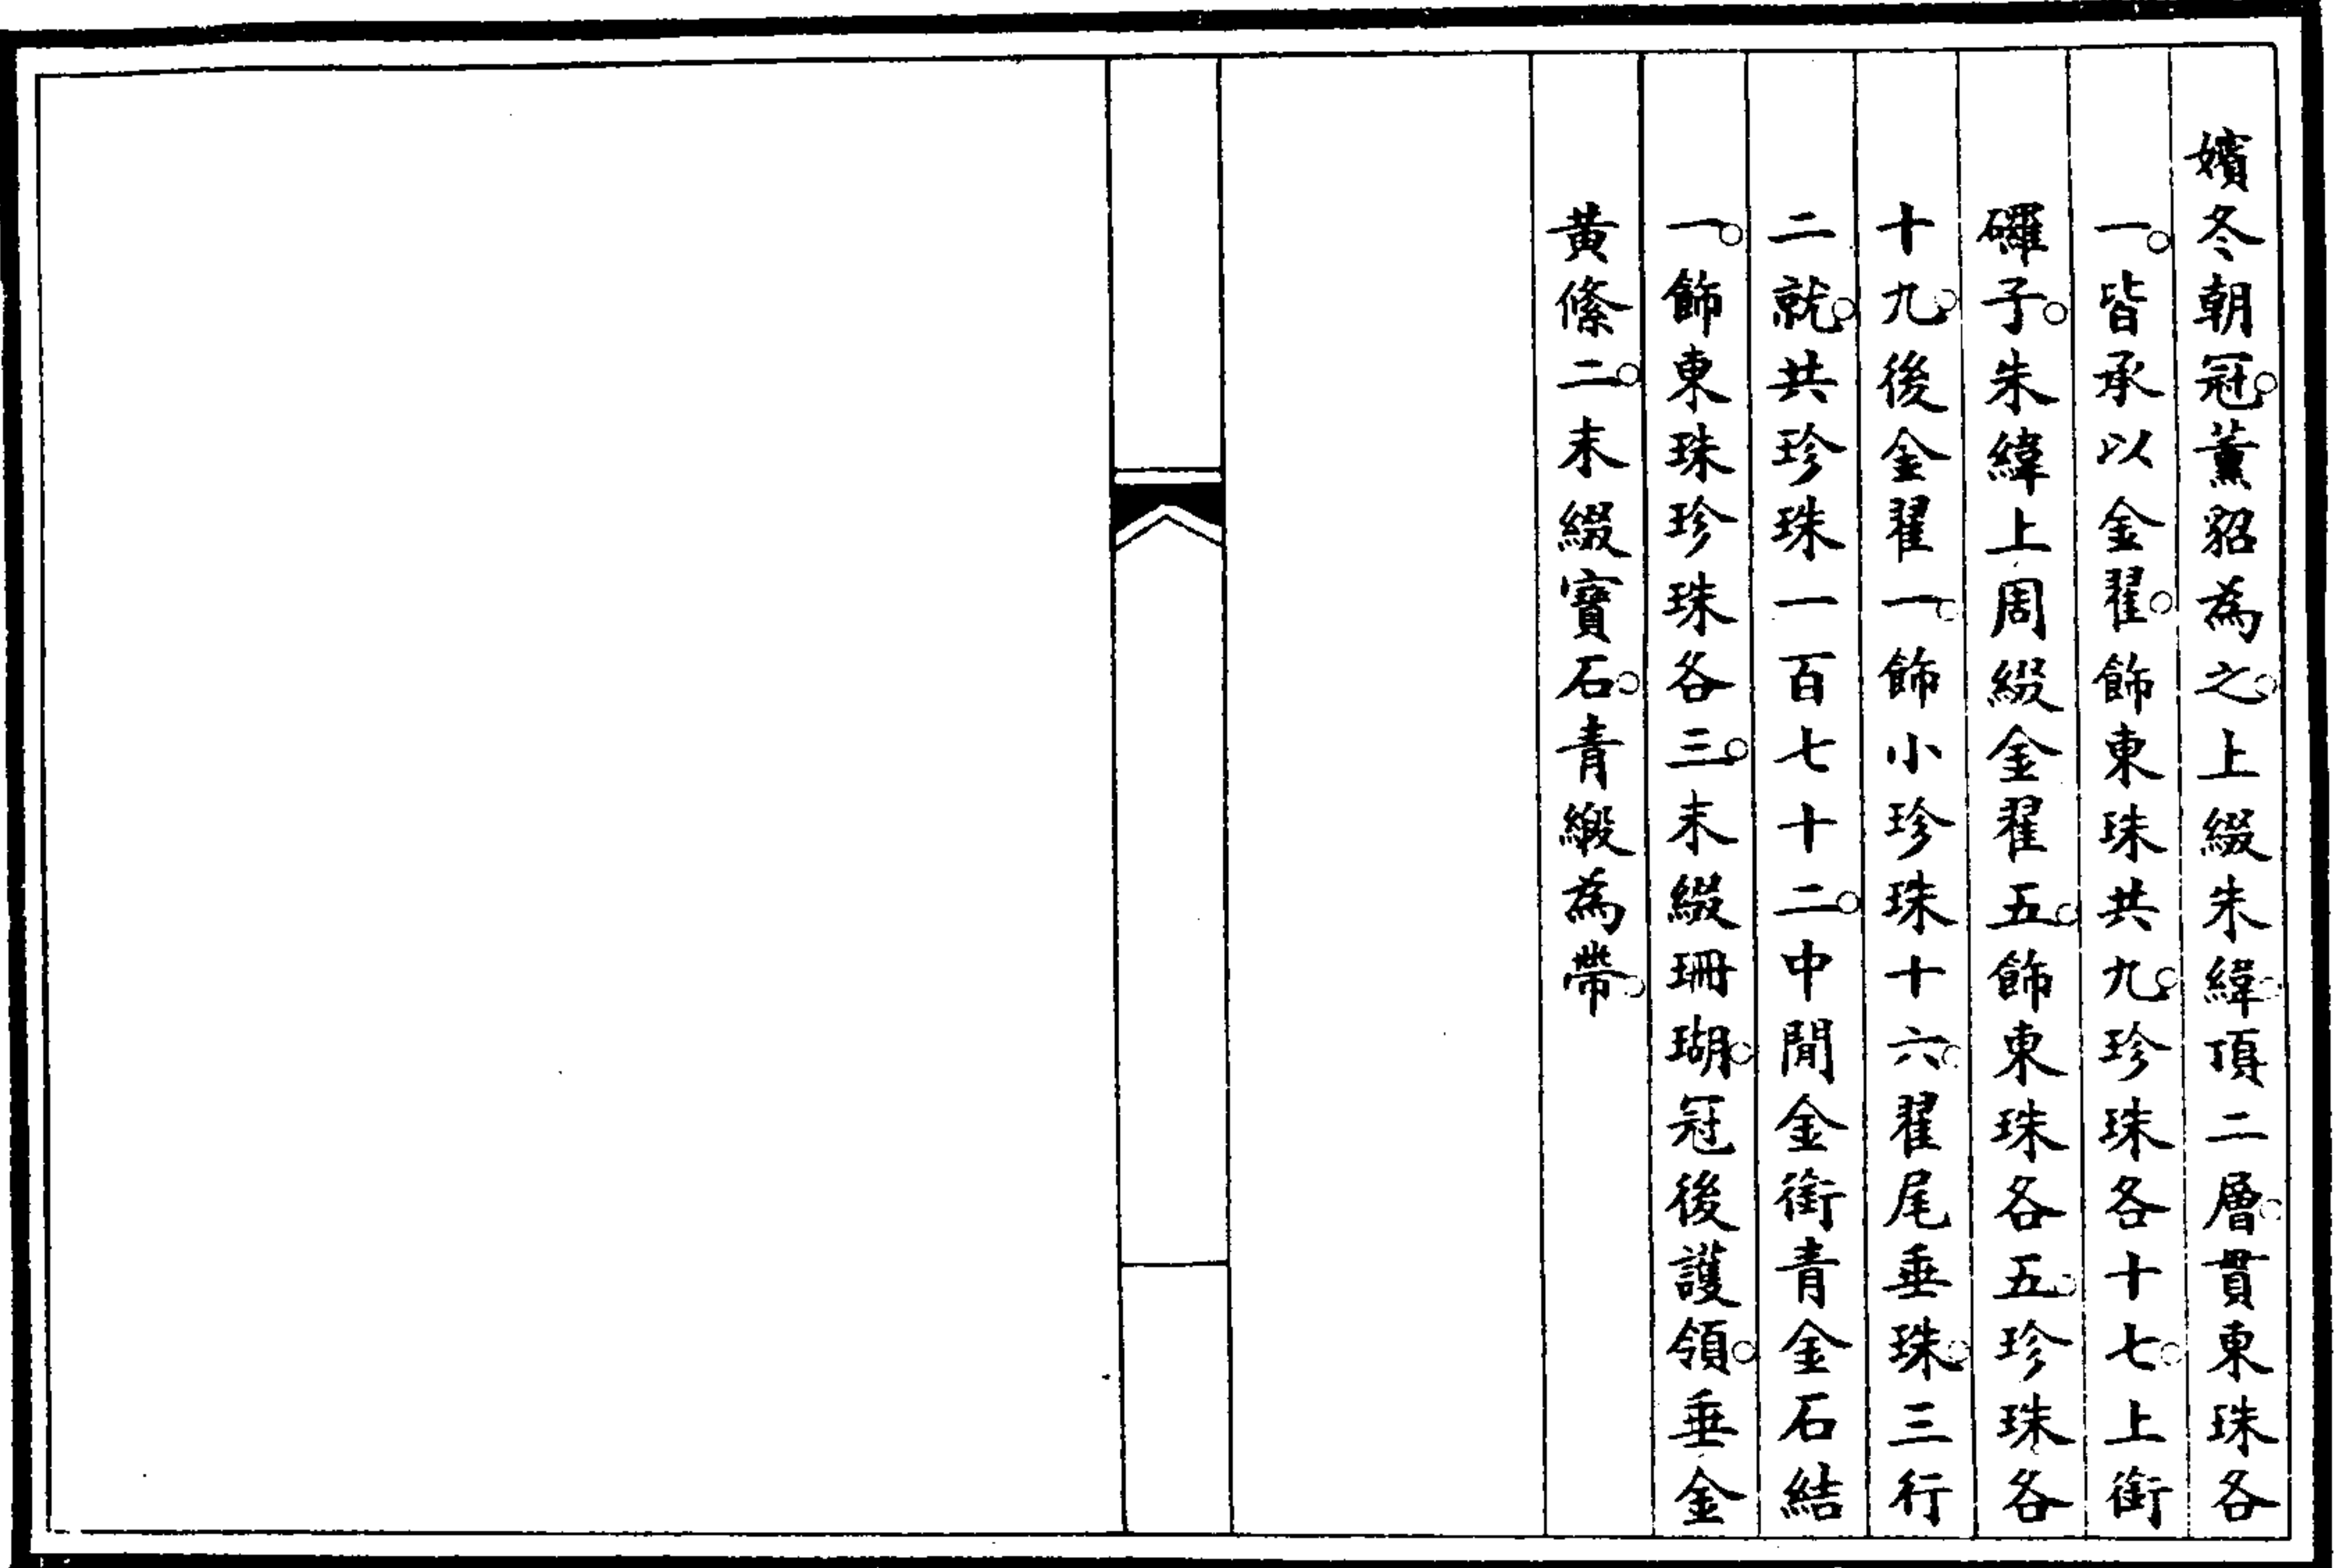 嬪冬朝冠。薰貂為之。上綴朱緯。頂二層。貫東珠各
一。皆承以金翟。飾東珠共九。珍珠各十七。上銜
䃕子。朱緯上周綴金翟五。飾東珠各五。珍珠各
十九。後金翟一。飾小珍珠十六。翟尾垂珠。三行
二就。共珍珠一百七十二。中間金銜青金石結
一。飾東珠珍珠各三。末綴珊瑚。冠後護領。垂金
黃絛二。末綴寶石。青緞為帶。